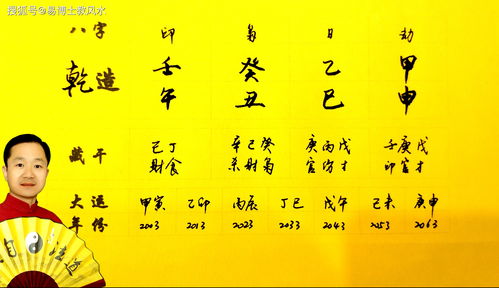 搜狐号@易博士教风水
八字 印 枭 日 劫
乾造 壬 癸 乙 甲
午 丑 巳 申
藏干 己丁 辛己癸 庚丙戊 壬庚戊
財食 杀財枭 官伤才 印官才
大运 甲寅 乙卯 丙辰 丁巳 戊午 己未 庚申
年份 2003 2013 2023 2033 2043 2053 2063
自法道